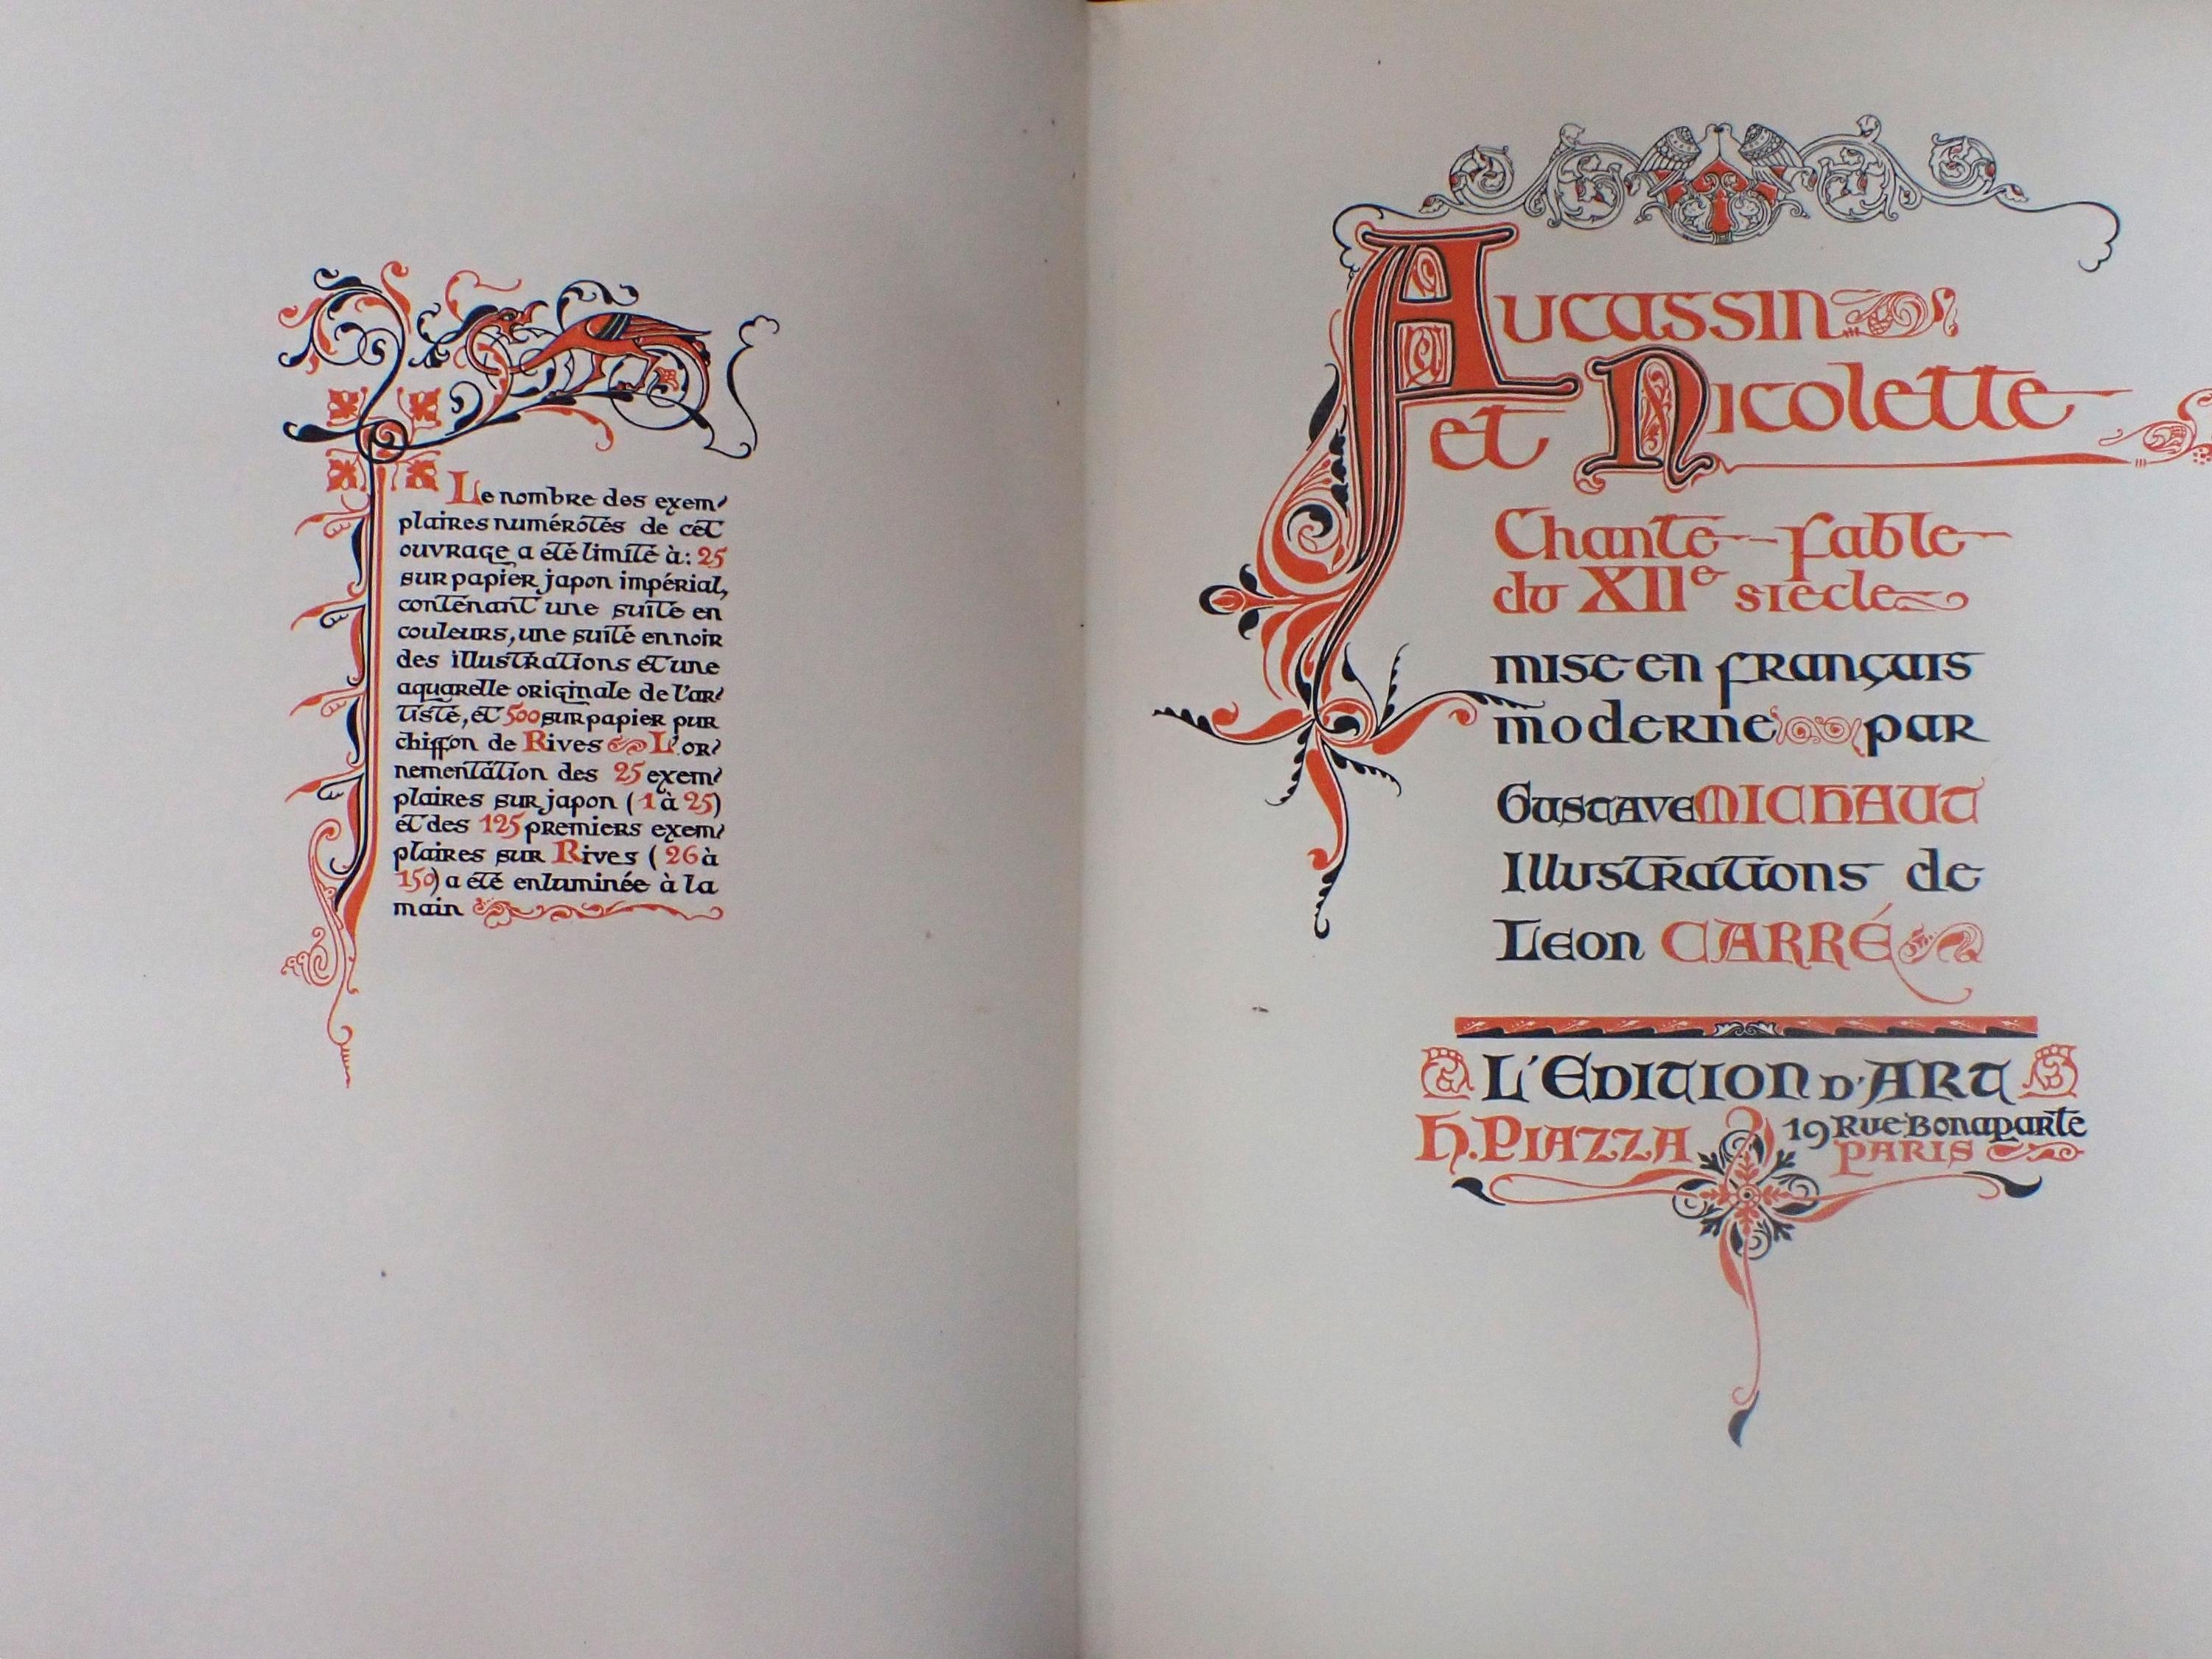 Le nombre des exem-
plaires numérótés de cet
ouvrage a été limité à: 25
sur papier japon impérial,
contenant une suite en
couleurs, une suite en noir
des illustrations et une
aquarelle originale de l'ar-
tiste, et 500 sur papier pur
chiffon de Rives L'or-
nementation des 25 exem-
plaires sur japon (1 à 25)
et des 125 premiers exem-
plaires sur Rives (26 à
150) a été enluminée à la
main
Aucassin
et Nicolette
Chante-fable
du XIIe siècle
mise en français
moderne par
Gustave MICHAUT
Illustrations de
Leon CARRÉ
L'EDITION D'ART
H. PIAZZA 19 Rue Bonaparte
PARIS